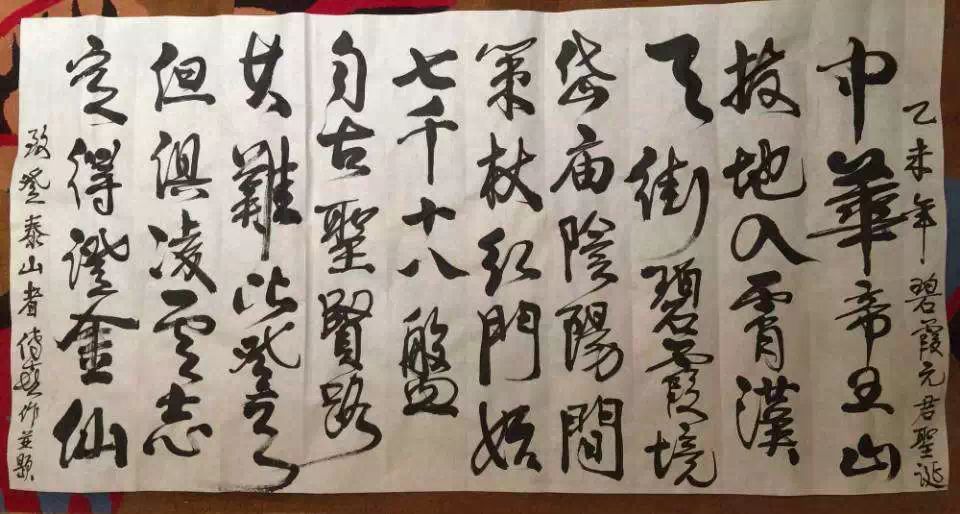 乙未年碧霞元君聖誕
中華帝王山
拔地入霄漢
天街碧霞境
岱庙陰陽間
策杖红門始
七千十八盤
自古聖賢路
其難比登天
但俱凌雲志
定得證金仙
致登泰山者 作並題